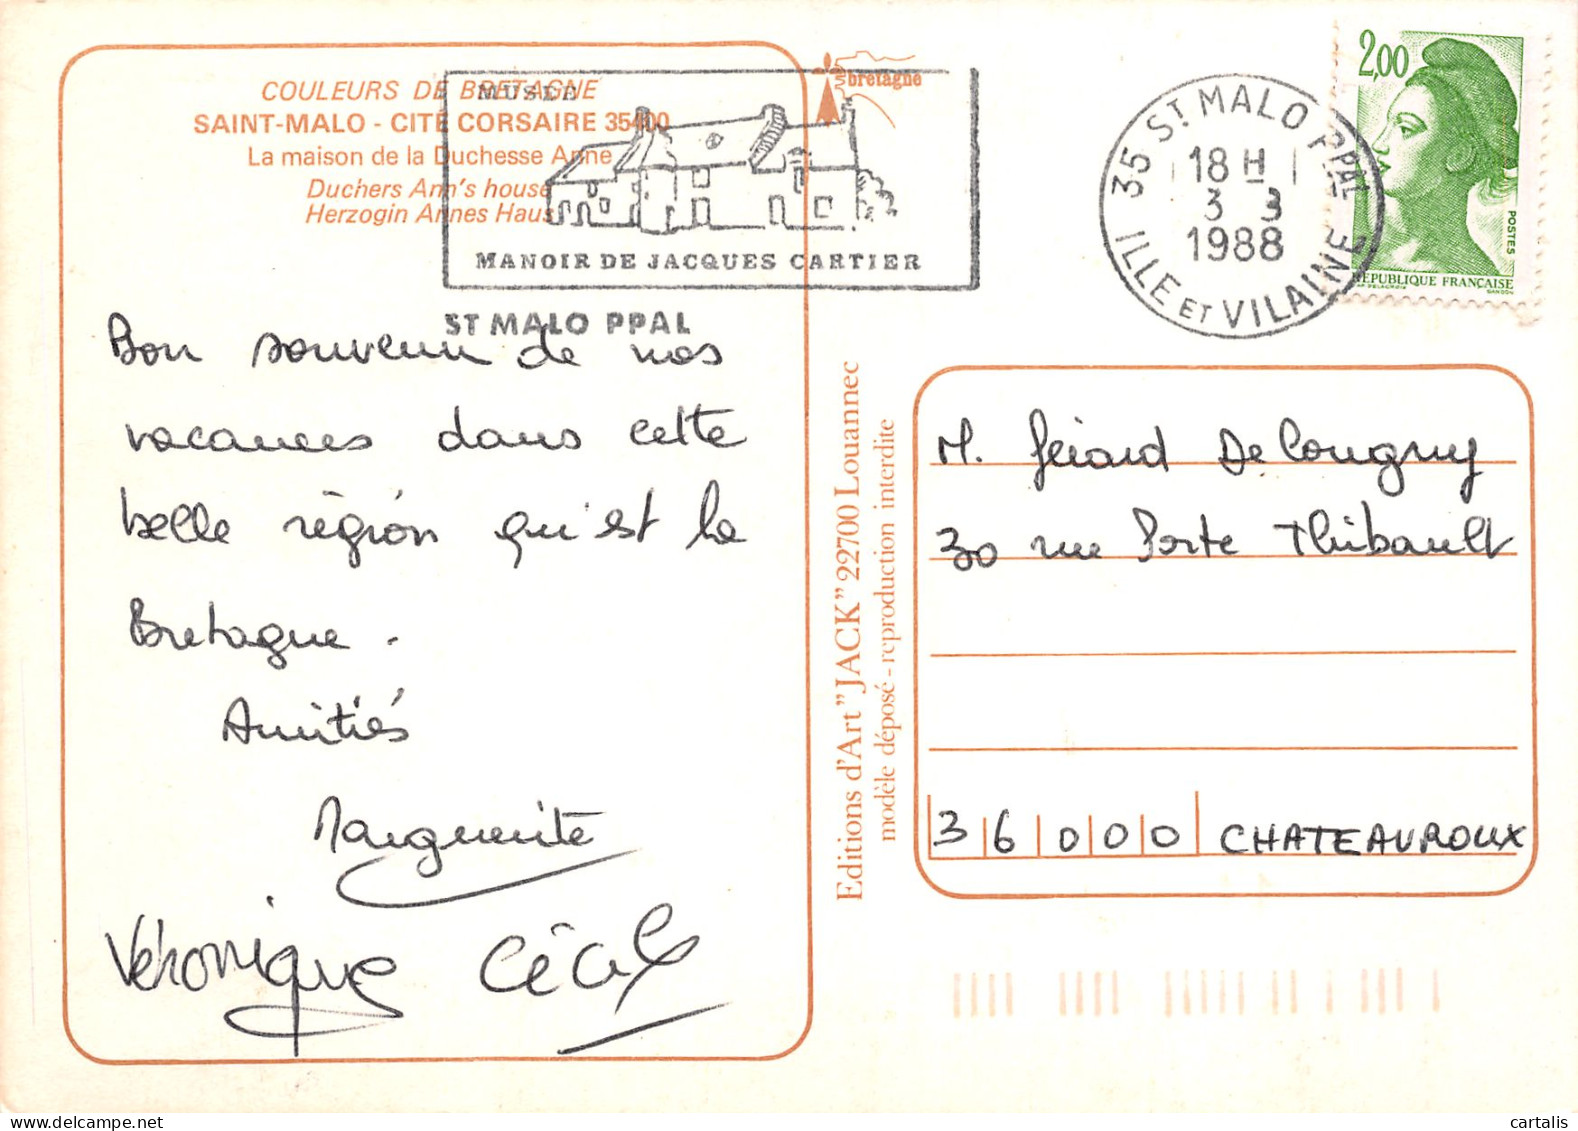 COULEURS DE BRETAGNE
SAINT-MALO - CITÉ CORSAIRE 35400
La maison de la Duchesse Anne
Duchers Ann's house
Herzogin Annes Haus
MUSÉE
MANOIR DE JACQUES CARTIER
ST MALO PPAL
bretagne
35 ST MALO PPAL
18 H
3 3
1988
ILLE ET VILAINE
2,00
POSTES
RÉPUBLIQUE FRANÇAISE
AP. DELACROIX
GANDON
Bon souvenir de nos
vacances dans cette
belle région qu'est la
Bretagne.
Amitiés
Marguerite
Véronique Cécile
Editions d'Art "JACK" 22700 Louannec
modèle déposé - reproduction interdite
M. Gérard Delougny
30 rue Porte Thibault
36000 CHATEAUROUX
cartalis